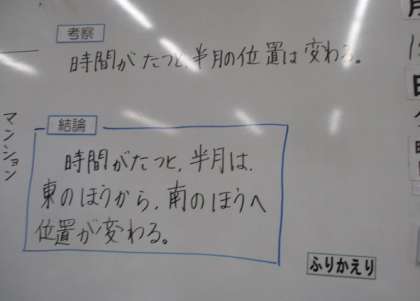 考察
時間がたつと、半月の位置は変わる。
マンション
結論
時間がたつと、半月は、
東のほうから、南のほうへ
位置が変わる。
ふりかえり